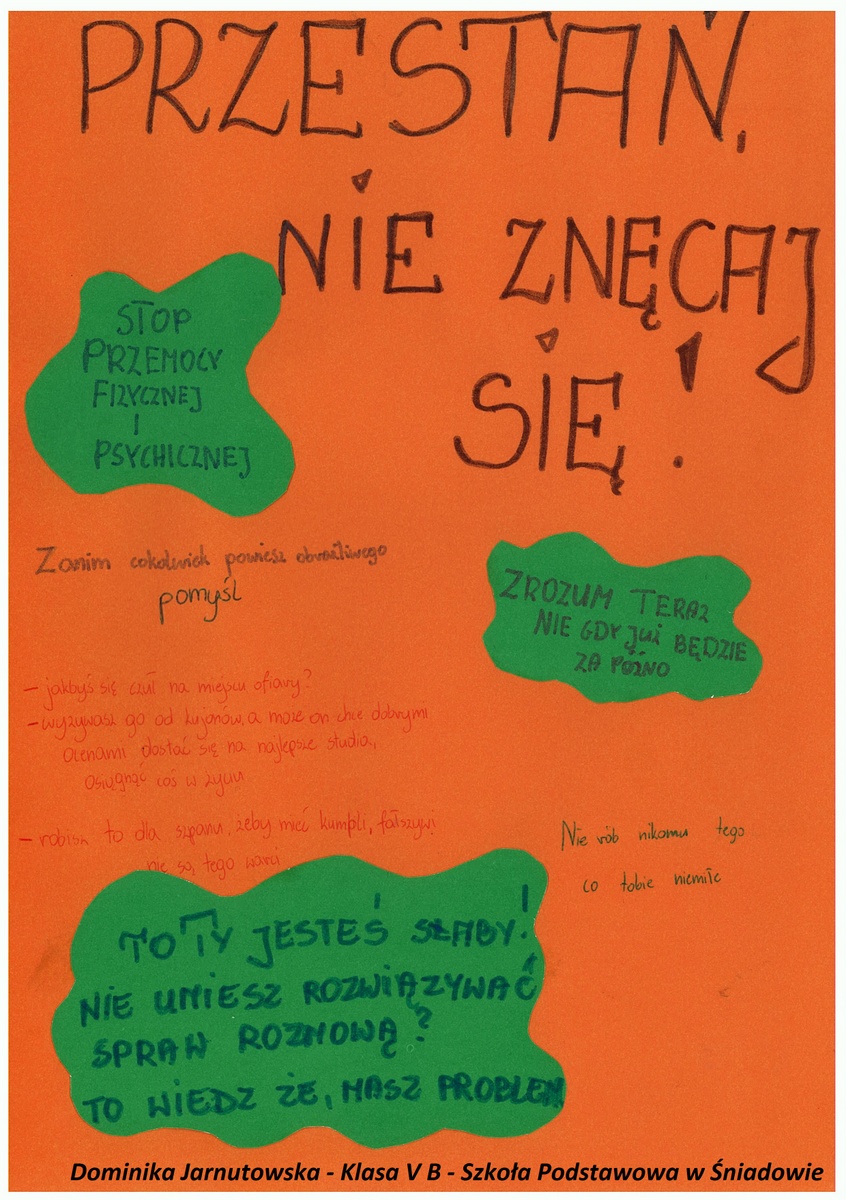 PRZESTAŃ,
NIE ZNĘCAJ
SIĘ!
STOP
PRZEMOCY
FIZYCZNEJ
I
PSYCHICZNEJ
Zanim cokolwiek powiesz obraźliwego
pomyśl
ZROZUM TERAZ
NIE GDY JUŻ BĘDZIE
ZA PÓŹNO
- jakbyś się czuł na miejscu ofiary?
- wyzywasz go od kujonów, a może on chce dobrymi
ocenami dostać się na najlepsze studia,
osiągnąć coś w życiu
- robisz to dla szpanu, żeby mieć kumpli, fałszywi
nie są tego warci
Nie rób nikomu tego
co tobie niemiłe
TO TY JESTEŚ SŁABY!
NIE UMIESZ ROZWIĄZYWAĆ
SPRAW ROZMOWĄ?
TO WIEDZ ŻE, MASZ PROBLEM
Dominika Jarnutowska - Klasa V B - Szkoła Podstawowa w Śniadowie